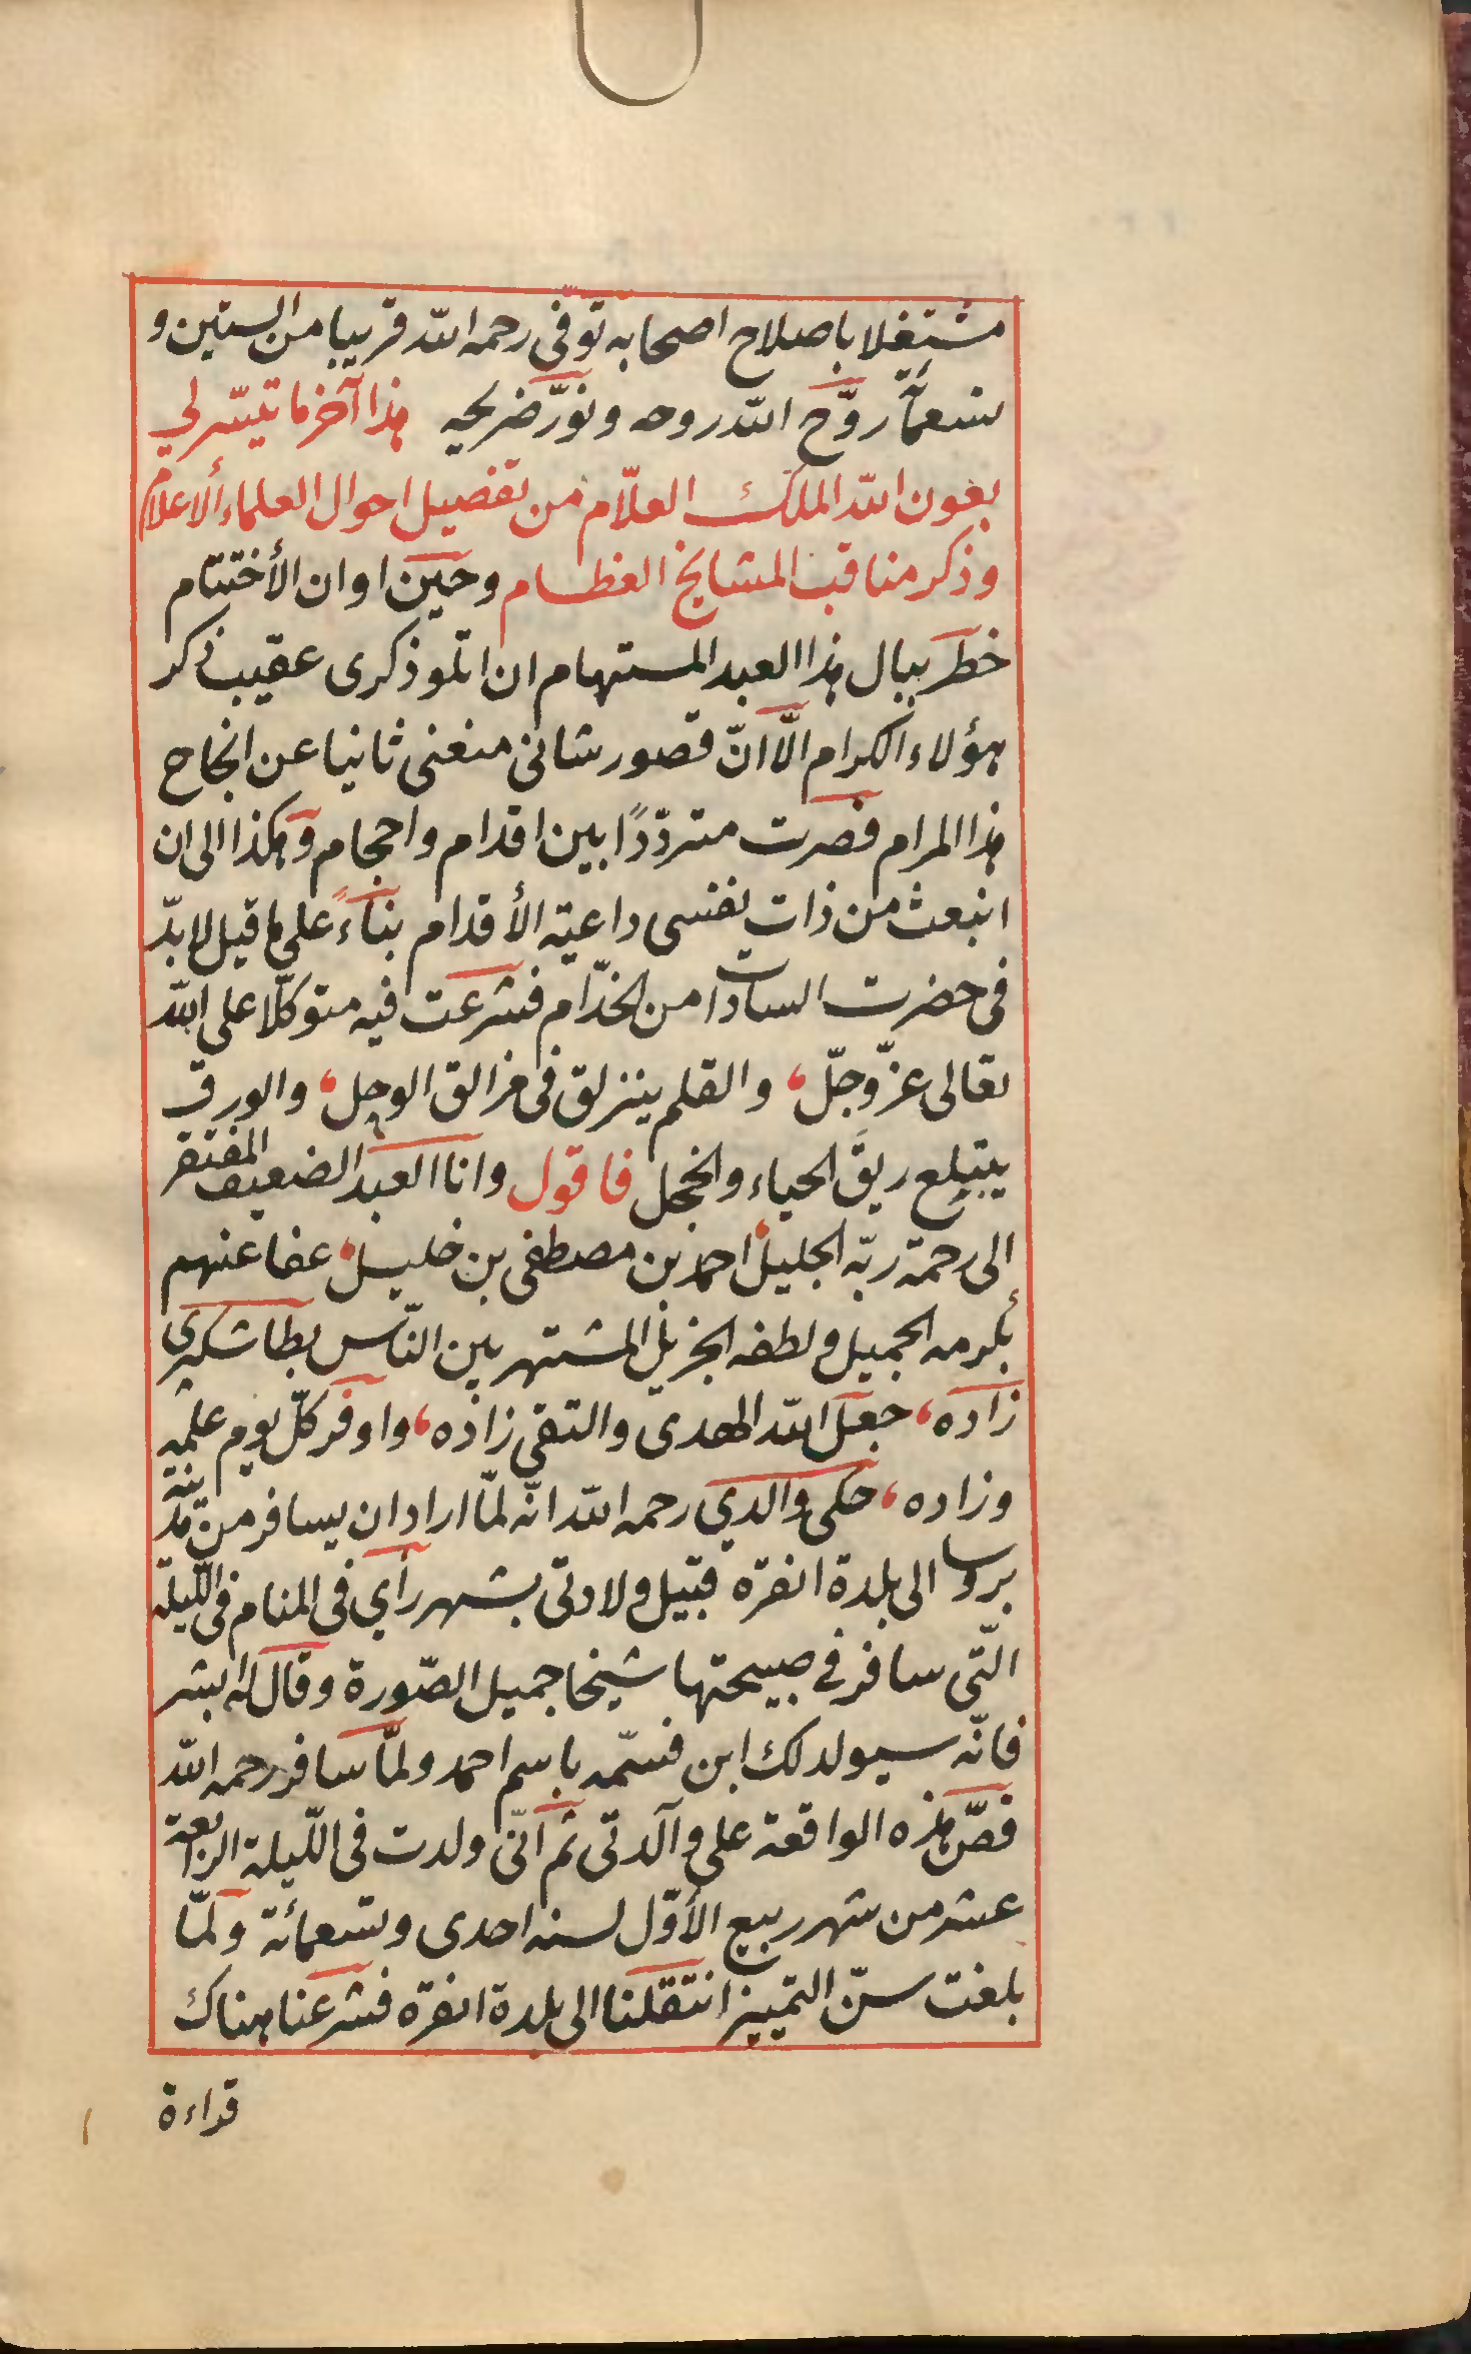 مشتغلا باصلاح اصحابه توفّى رحمه اللّه قريبا من الستين و
تسعمأئة روّح اللّه روحه ونوّر ضريحه هذا آخر ما تيسّر لي
بعون اللّه الملك العلّام من تفصيل احوال العلماء ألاعلام
وذكر مناقب المشايخ العظام وحين اوان الأختتام
خطر ببال هذا العبد المستهام ان اتلو ذكرى عقيب ذكر
هؤلاء الكرام الّا انّ قصور شانى منعنى ثانيا عن انجاح
هذا المرام فصرت متردّدًا بين اقدام واحجام وهكذا الى ان
انبعث من ذات نفسى داعية الأقدام بناءً على ما قيل لا بدّ
فى حضرت السادات من الخدّام فشرعت فيه متوكّلا على اللّه
تعالى عزّ وجلّ، والقلم ينزلق فى مزالق الوجل، والورق
يبتلع ريقَ الحياء والخجل فاقول وانا العبد الضعيف المفتقر
الى رحمة ربّه الجليل، احمد بن مصطفى بن خليل، عفا عنهم
بكرمه الجميل ولطفه الجزيل المشتهر بين النّاس بطاشكبرى
زاده، جعل اللّه الهدى والتقى زاده، واوفر كلّ يوم علمه
وزاده، حكى والدي رحمه اللّه انّه لمّا اراد ان يسافر من مدينة
بروسا الى بلدة انقره قبيل ولادتى بشهر رأي فى المنام فى اللّيلة
الّتى سافر في صبيحتها شيخا جميل الصّورة وقال له ابشر
فانّه سيولد لك ابن فسمّه باسم احمد ولمّا سافر رحمه اللّه
قصّ هذه الواقعة على والدتى ثم انّى ولدت فى اللّيلة الرابعة
عشر من شهر ربيع الأوّل لسنه احدى وتسعمأئة ولمّا
بلغت سنّ التمييز انتقلنا الى بلدة انقره فشرعنا هناك
قراءة